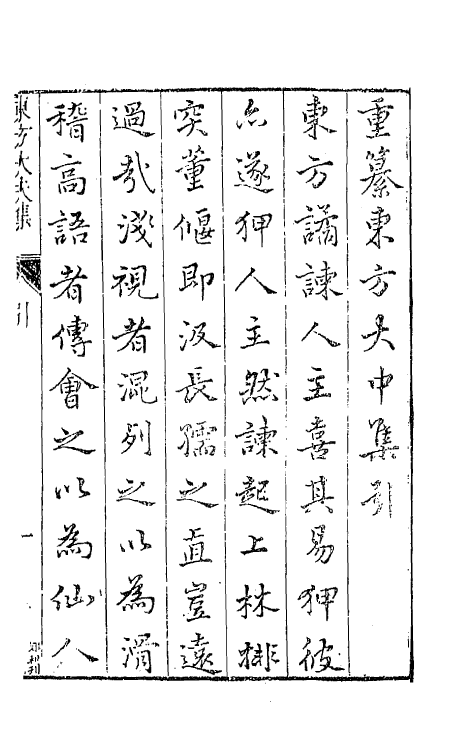 重纂東方大中集引
東方譎諫人主喜其易狎彼
亦遂狎人主然諫起上林排
突董偃即汲長孺之直豈遠
過哉淺視者混列之以為滑
稽高語者傅會之以為仙人
東方大夫集
引
一